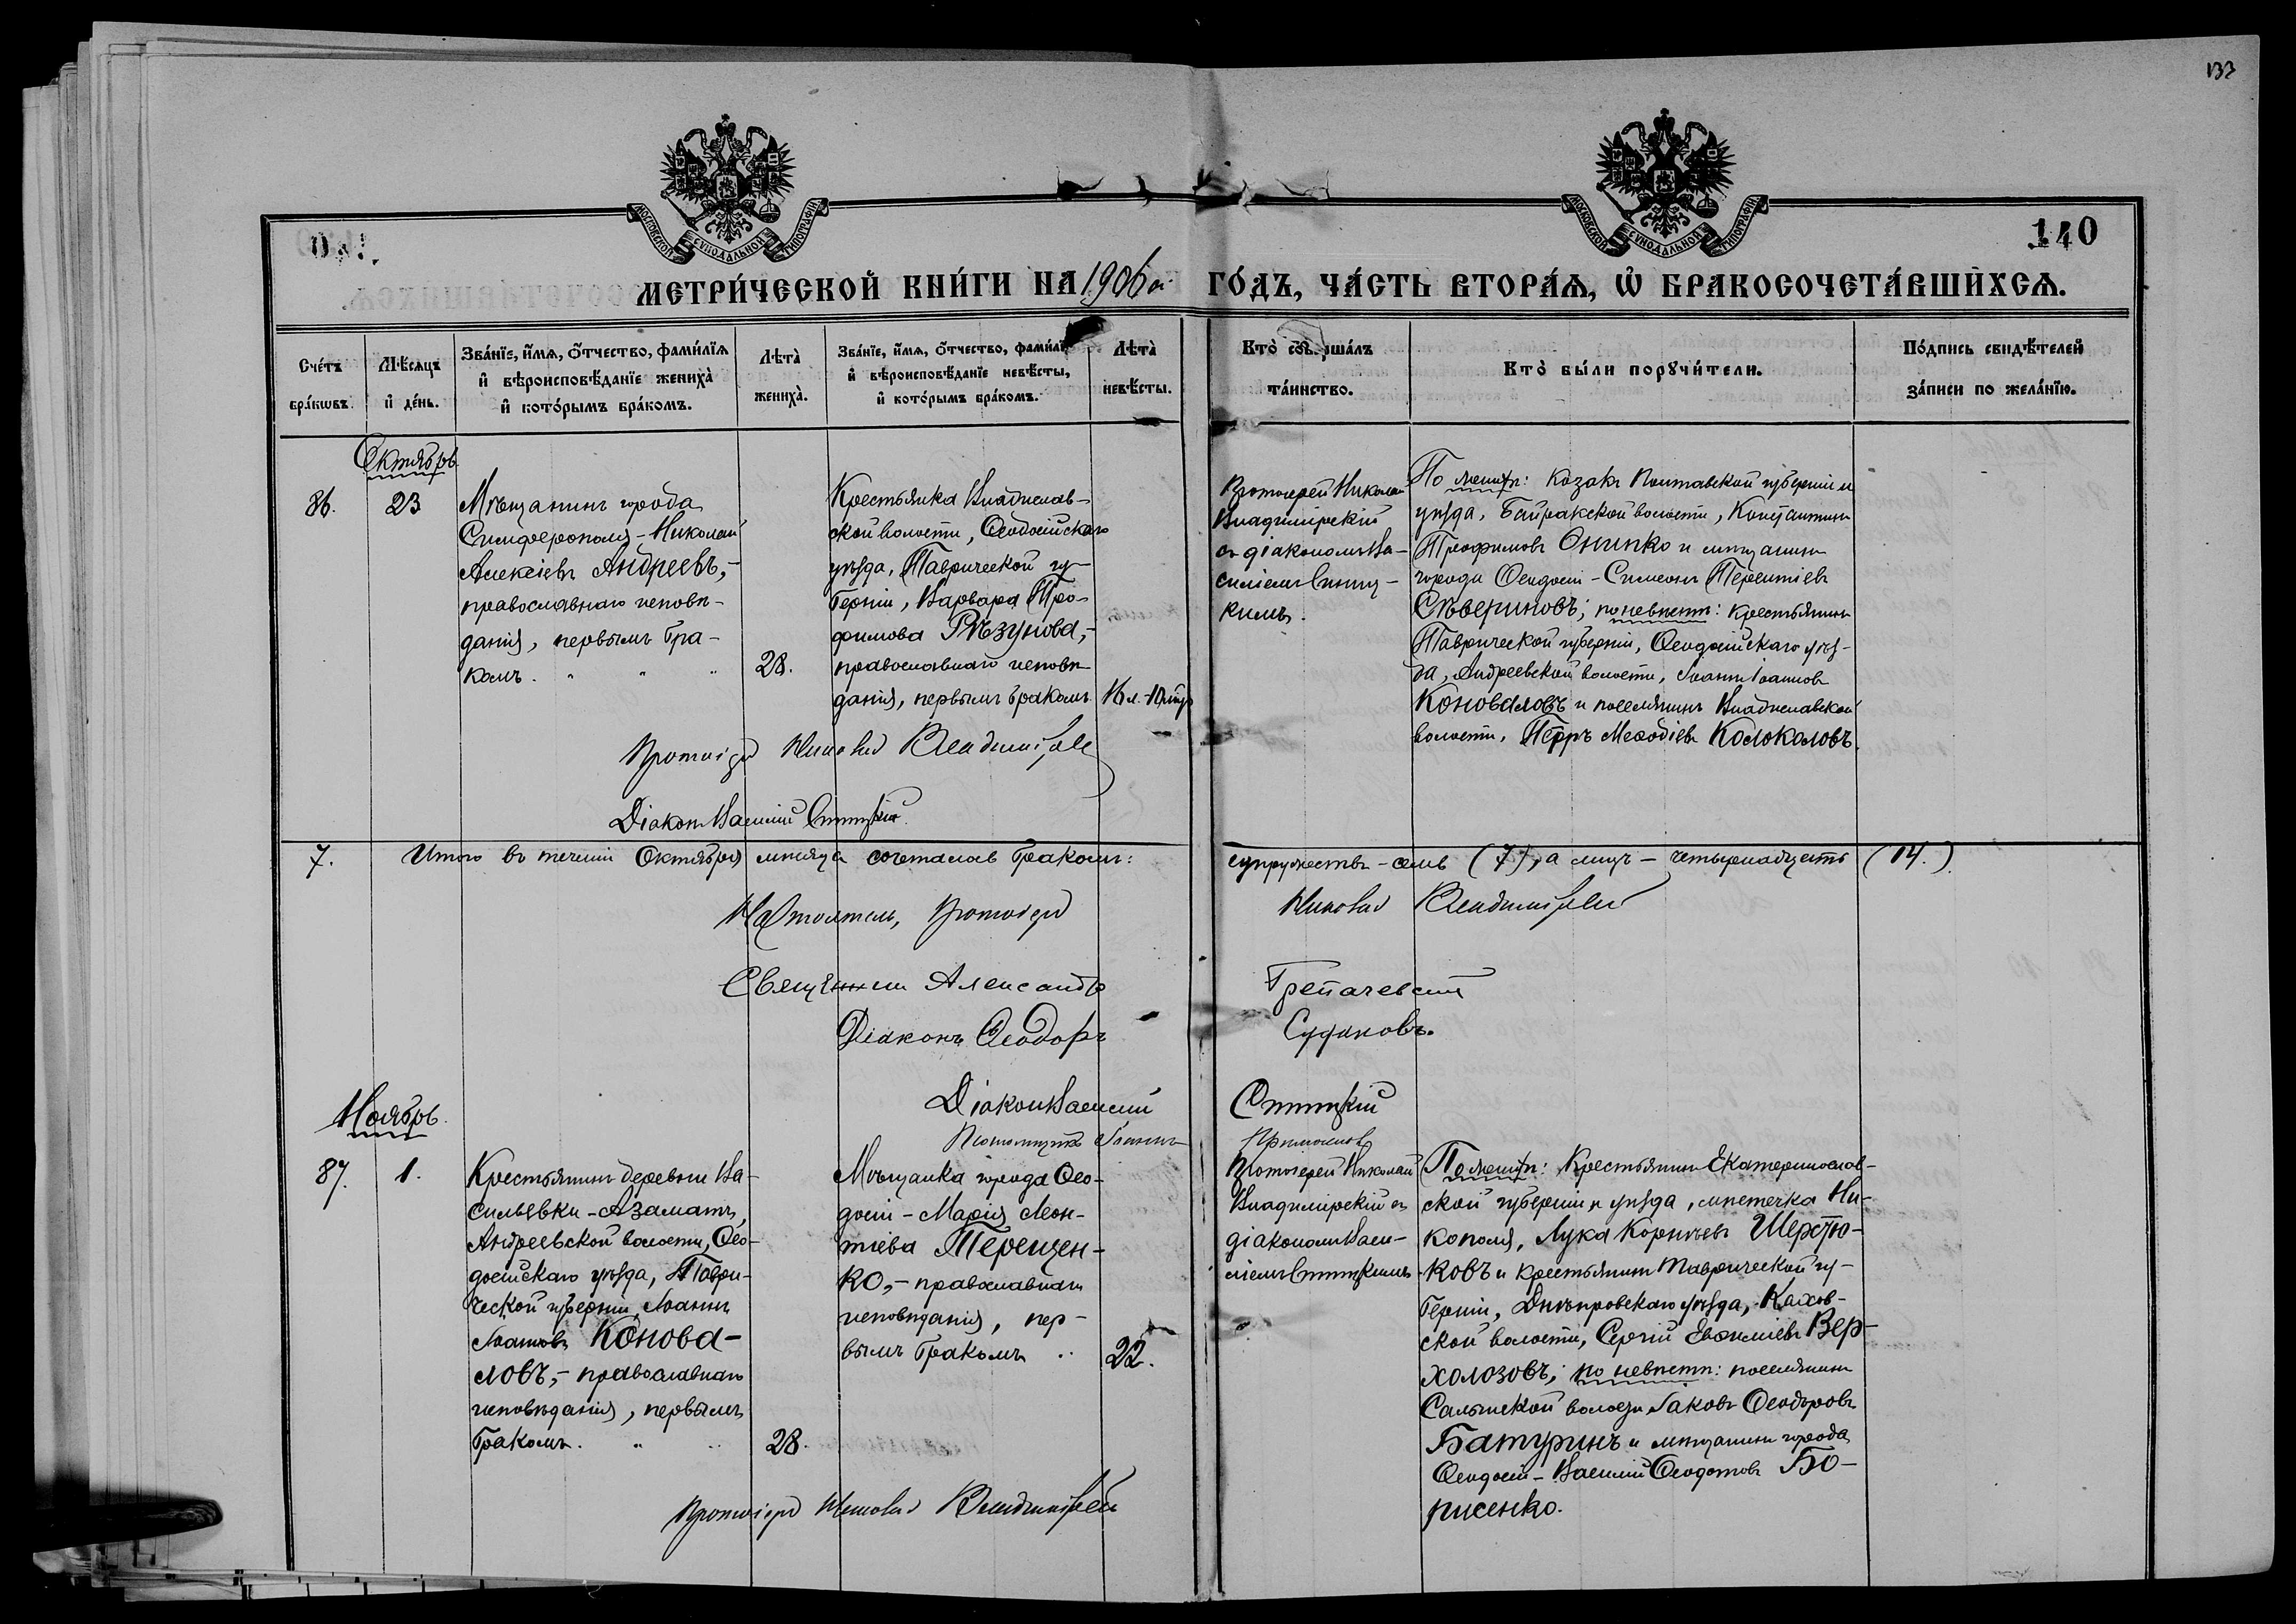 133
МОСКОВСКОЙ СѴНОДАЛЬНОЙ ТИПОГРАФІИ
МОСКОВСКОЙ СѴНОДАЛЬНОЙ ТИПОГРАФІИ
140
МЕТРИ́ЧЕСКОЙ КНИ́ГИ НА 1906й ГО́ДЪ, ЧА́СТЬ ВТОРА́Я, Ѡ БРАКОСОЧЕТА́ВШИХСЯ.
Сче́тъ
бра́кѡвъ.
Мѣ́сяцъ
и де́нь.
Зва́нїе, и́мя, о́тчество, фами́лїя
и вѣроисповѣ́данїе жениха̀
и кото́рымъ бра́комъ.
Лѣта̀
жениха̀.
Зва́нїе, и́мя, о́тчество, фами́лїя
и вѣроисповѣ́данїе невѣ́сты,
и кото́рымъ бра́комъ.
Лѣта̀
невѣ́сты.
Кто̀ сов..рша́лъ
та́инство.
Кто̀ бы́ли порꙋчи́тели.
По́дпись свидѣ́телей
за́писи по жела́нїю.
Октябрь
86.
23
Мѣщанинъ города
Симферополя - Николай
Алексіевъ Андреевъ,-
православнаго исповѣ-
данія, первымъ бра-
комъ.
28.
Крестьянка Владислав-
ской волости, Ѳеодосійскаго
уѣзда, Таврической гу-
берніи, Варвара Тро-
фимова Рѣзунова,-
православнаго исповѣ-
данія, первымъ бракомъ
16 л.
Протоіерей Николай
Владимірскій
съ діакономъ Ва-
силіемъ Спитц-
кимъ.
По женихѣ: Козакъ Полтавской губерніи и
уѣзда, Байракской волости, Константинъ
Трофимовъ Онипко и мѣщанинъ
города Ѳеодосіи - Симеонъ Терентіевъ
Сѣвериновъ; по невѣстѣ: крестьянинъ
Таврической губерніи, Ѳеодосійскаго уѣз-
да, Андреевской волости, Іоаннъ Іоанновъ
Коноваловъ и поселянинъ Владиславской
волости, Петръ Меѳодіевъ Колоколовъ.
Протоіерей Николай Владимірскій
Діаконъ Василій Спитцкій
7.
Итого въ теченіи Октября мѣсяца сочеталось бракомъ: супружествъ - семь (7), а лицъ - четырнадцать (14.)
Настоятель, Протоіерей Николай Владимірскій
Священникъ Александръ
Діаконъ Ѳеодоръ Судаковъ.
Діаконъ Василій Спитцкій
Псаломщикъ Іоаннъ
Ноябрь
87.
1.
Крестьянинъ деревни Ва-
сильевки-Азаматъ,
Андреевской волости, Ѳео-
досійскаго уѣзда, Таври-
ческой губерніи, Іоаннъ
Іоанновъ Конова-
ловъ,- православнаго
исповѣданія, первымъ
бракомъ.
28.
Мѣщанка города Ѳео-
досіи - Марія Леон-
тіева Терещен-
ко,- православнаго
исповѣданія, пер-
вымъ бракомъ
22.
Протоіерей Николай
Владимірскій съ
діакономъ Васи-
ліемъ Спитцкимъ
По женихѣ: Крестьянинъ Екатеринослав-
ской губерніи и уѣзда, мѣстечка Ни-
кополя, Лука Корнѣевъ Шерстю-
ковъ и крестьянинъ Таврической гу-
берніи, Днѣпровскаго уѣзда, Кахов-
ской волости, Сергій Евѳиміевъ Вер-
холозовъ; по невѣстѣ: поселянинъ
Салынской волости Іаковъ Ѳеодоровъ
Батуринъ и мѣщанинъ города
Ѳеодосіи - Василій Ѳеодотовъ Бо-
рисенко.
Протоіерей Николай Владимірскій